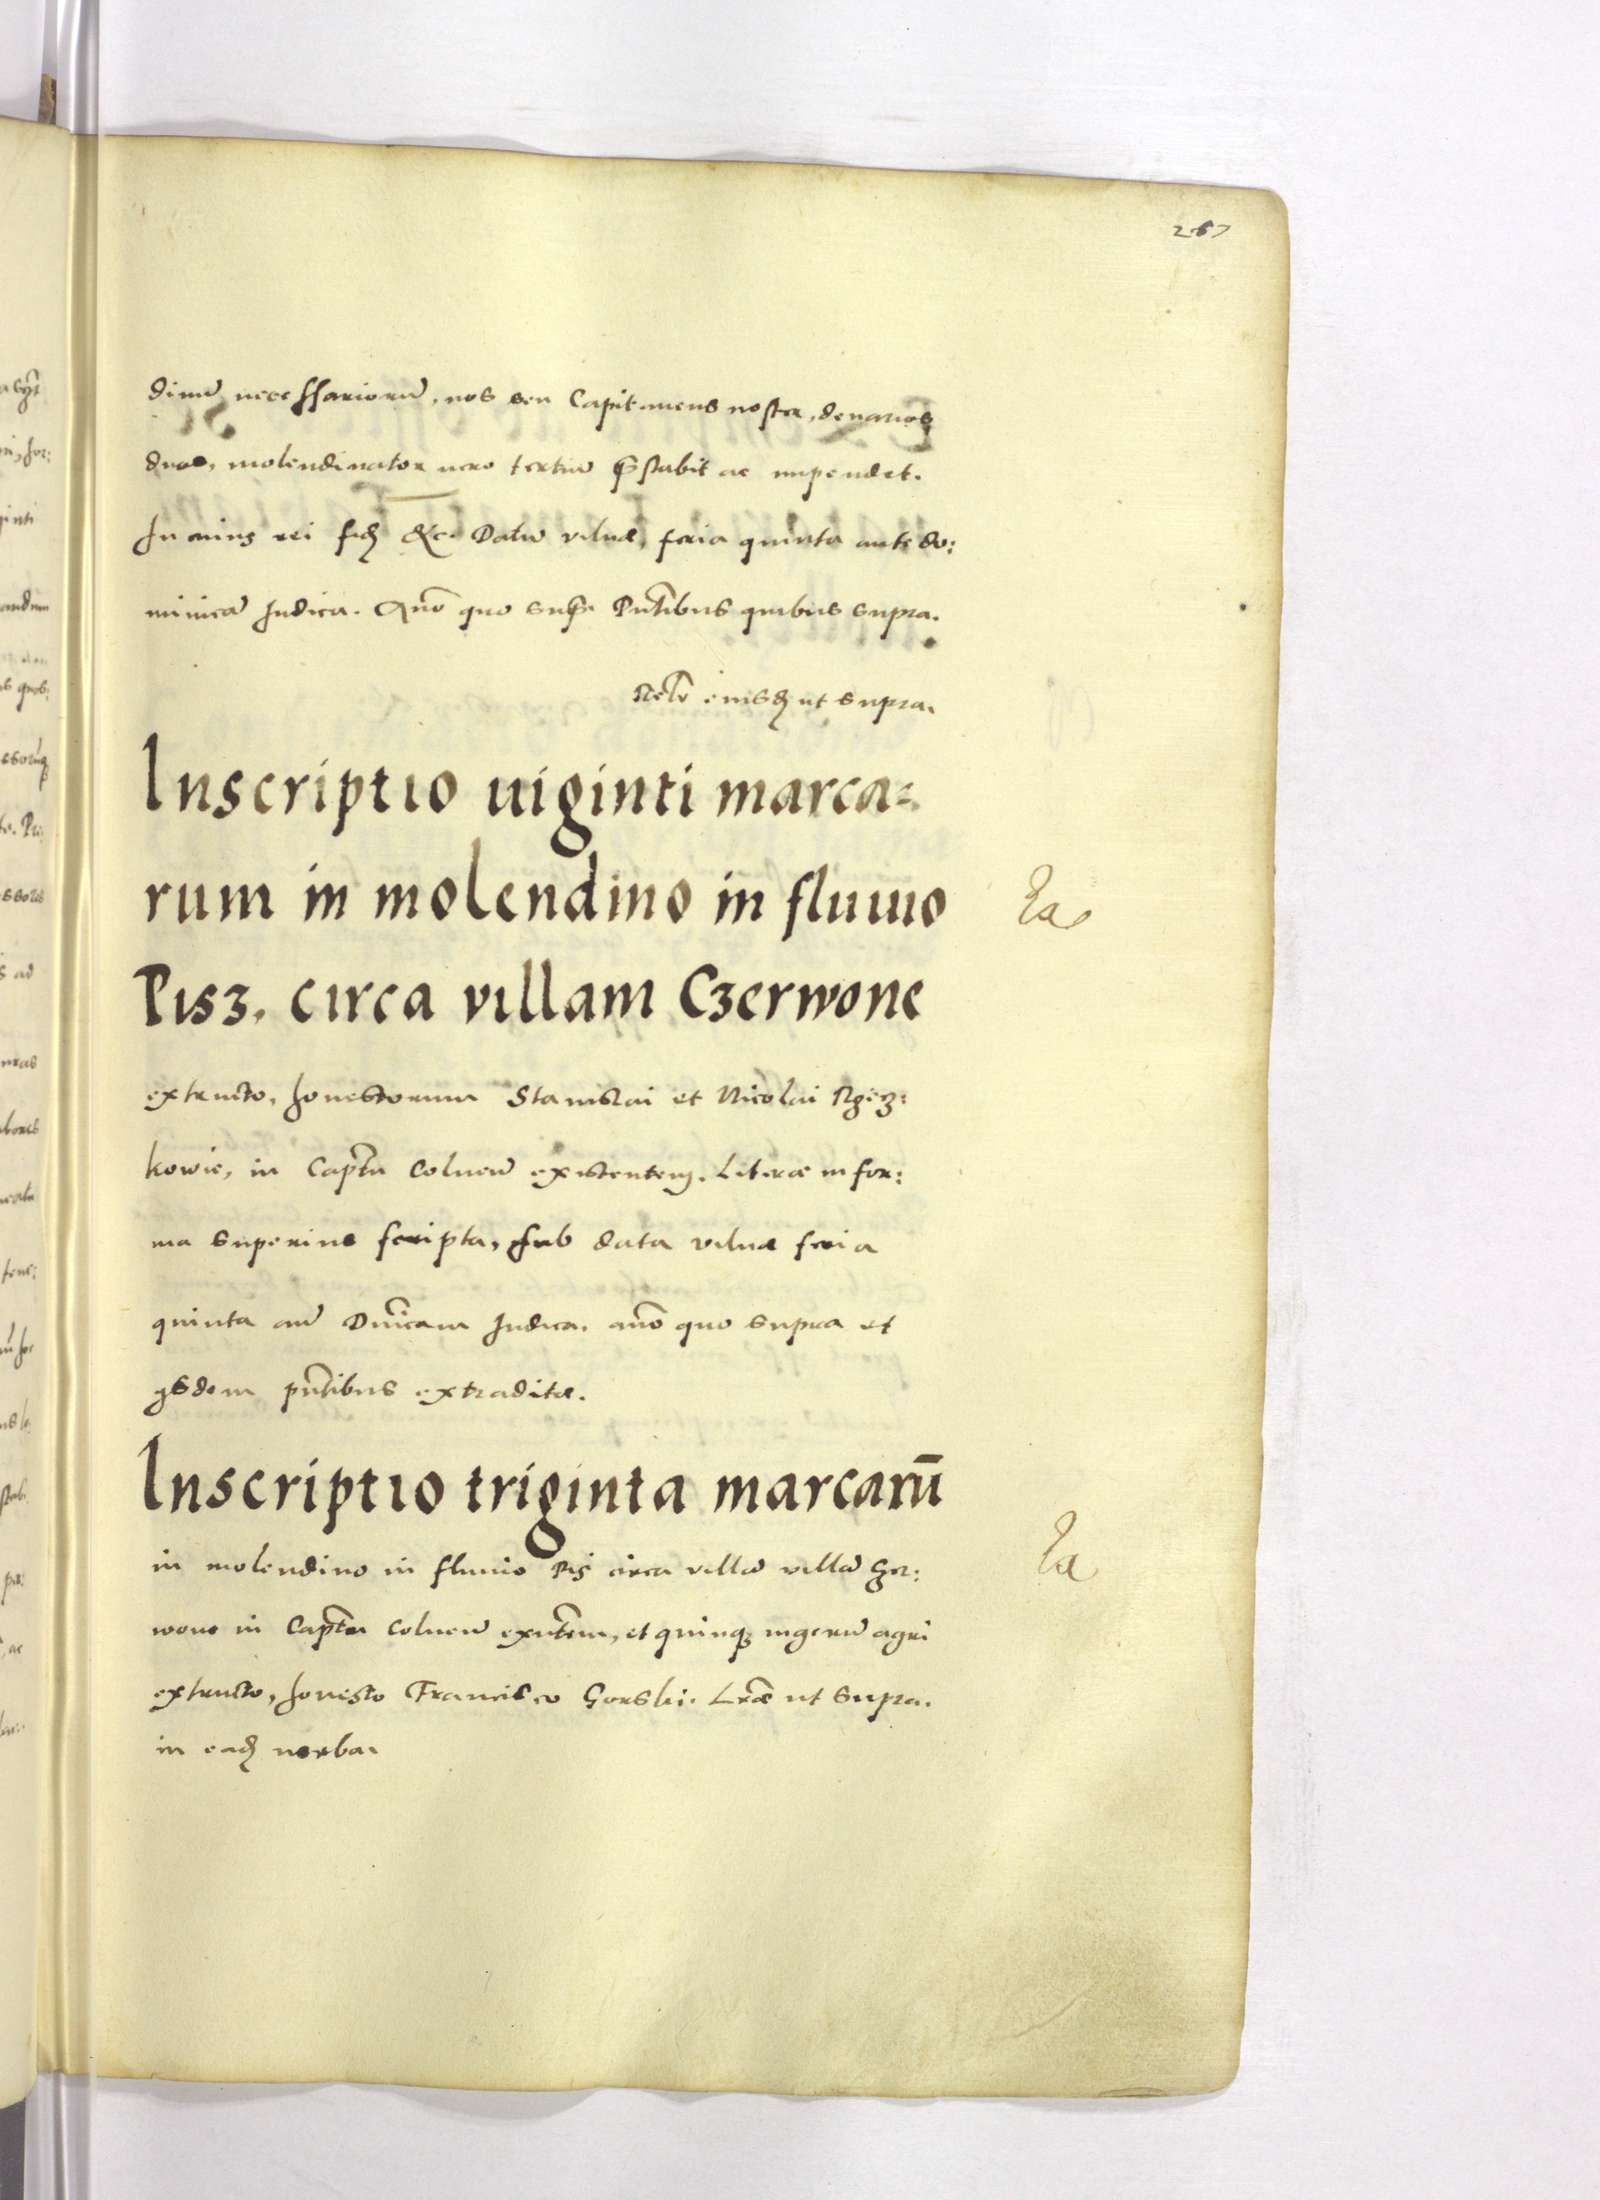 267
dinũ necessariorũ, nos seu Capitaneus noster, denarios
duos, molendinator uero tertiũ p̃stabit ac impendet.
In cuius rei fidẽ &c. Datũ Vilnæ, feria quinta ante do:
minicã Iudica. Año quo sup̃. Pñtibus quibus supra.
Relõ eiusdẽ ut supra.
Inscriptio uiginti marca=
rum in molendino in fluuio
Pisz. circa villam Czerwone
extructo, honestorum Stanislai et Nicolai
kowie, in Captũ Colneñ existentem. Literæ in for:
ma superius scripta, sub data Vilnæ feria
quinta añ Dñicam Iudica. año quo supra et
ijsdem pñtibus extraditæ.
Inscriptio triginta marcarũ
in molendino in fluuio Pis circa villã villã Czer:
wone in Captũ Colneñ exñtem, et quinq; iugerũ agri
extructo, honesto Francisco Gorski. Lræ ut supra.
in eadẽ uerba.